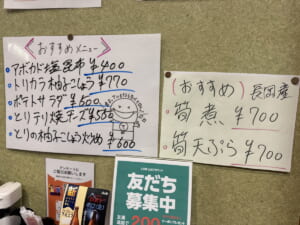 おすすめメニュー
・アボカド塩昆布 ¥400
・トリカラ柚子こしょう ¥770
・ポテトサラダ ¥600
・とりテリ焼チーズ ¥580
・とりの柚子こしょう炒め ¥600
(おすすめ) 長岡産
・筍煮 ¥700
・筍天ぷら ¥700
友だち
募集中
200